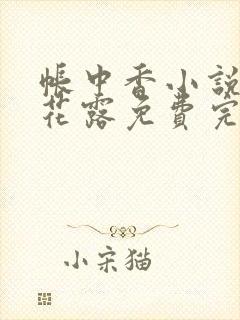 帳中香小說
花露免費完
小宋猫